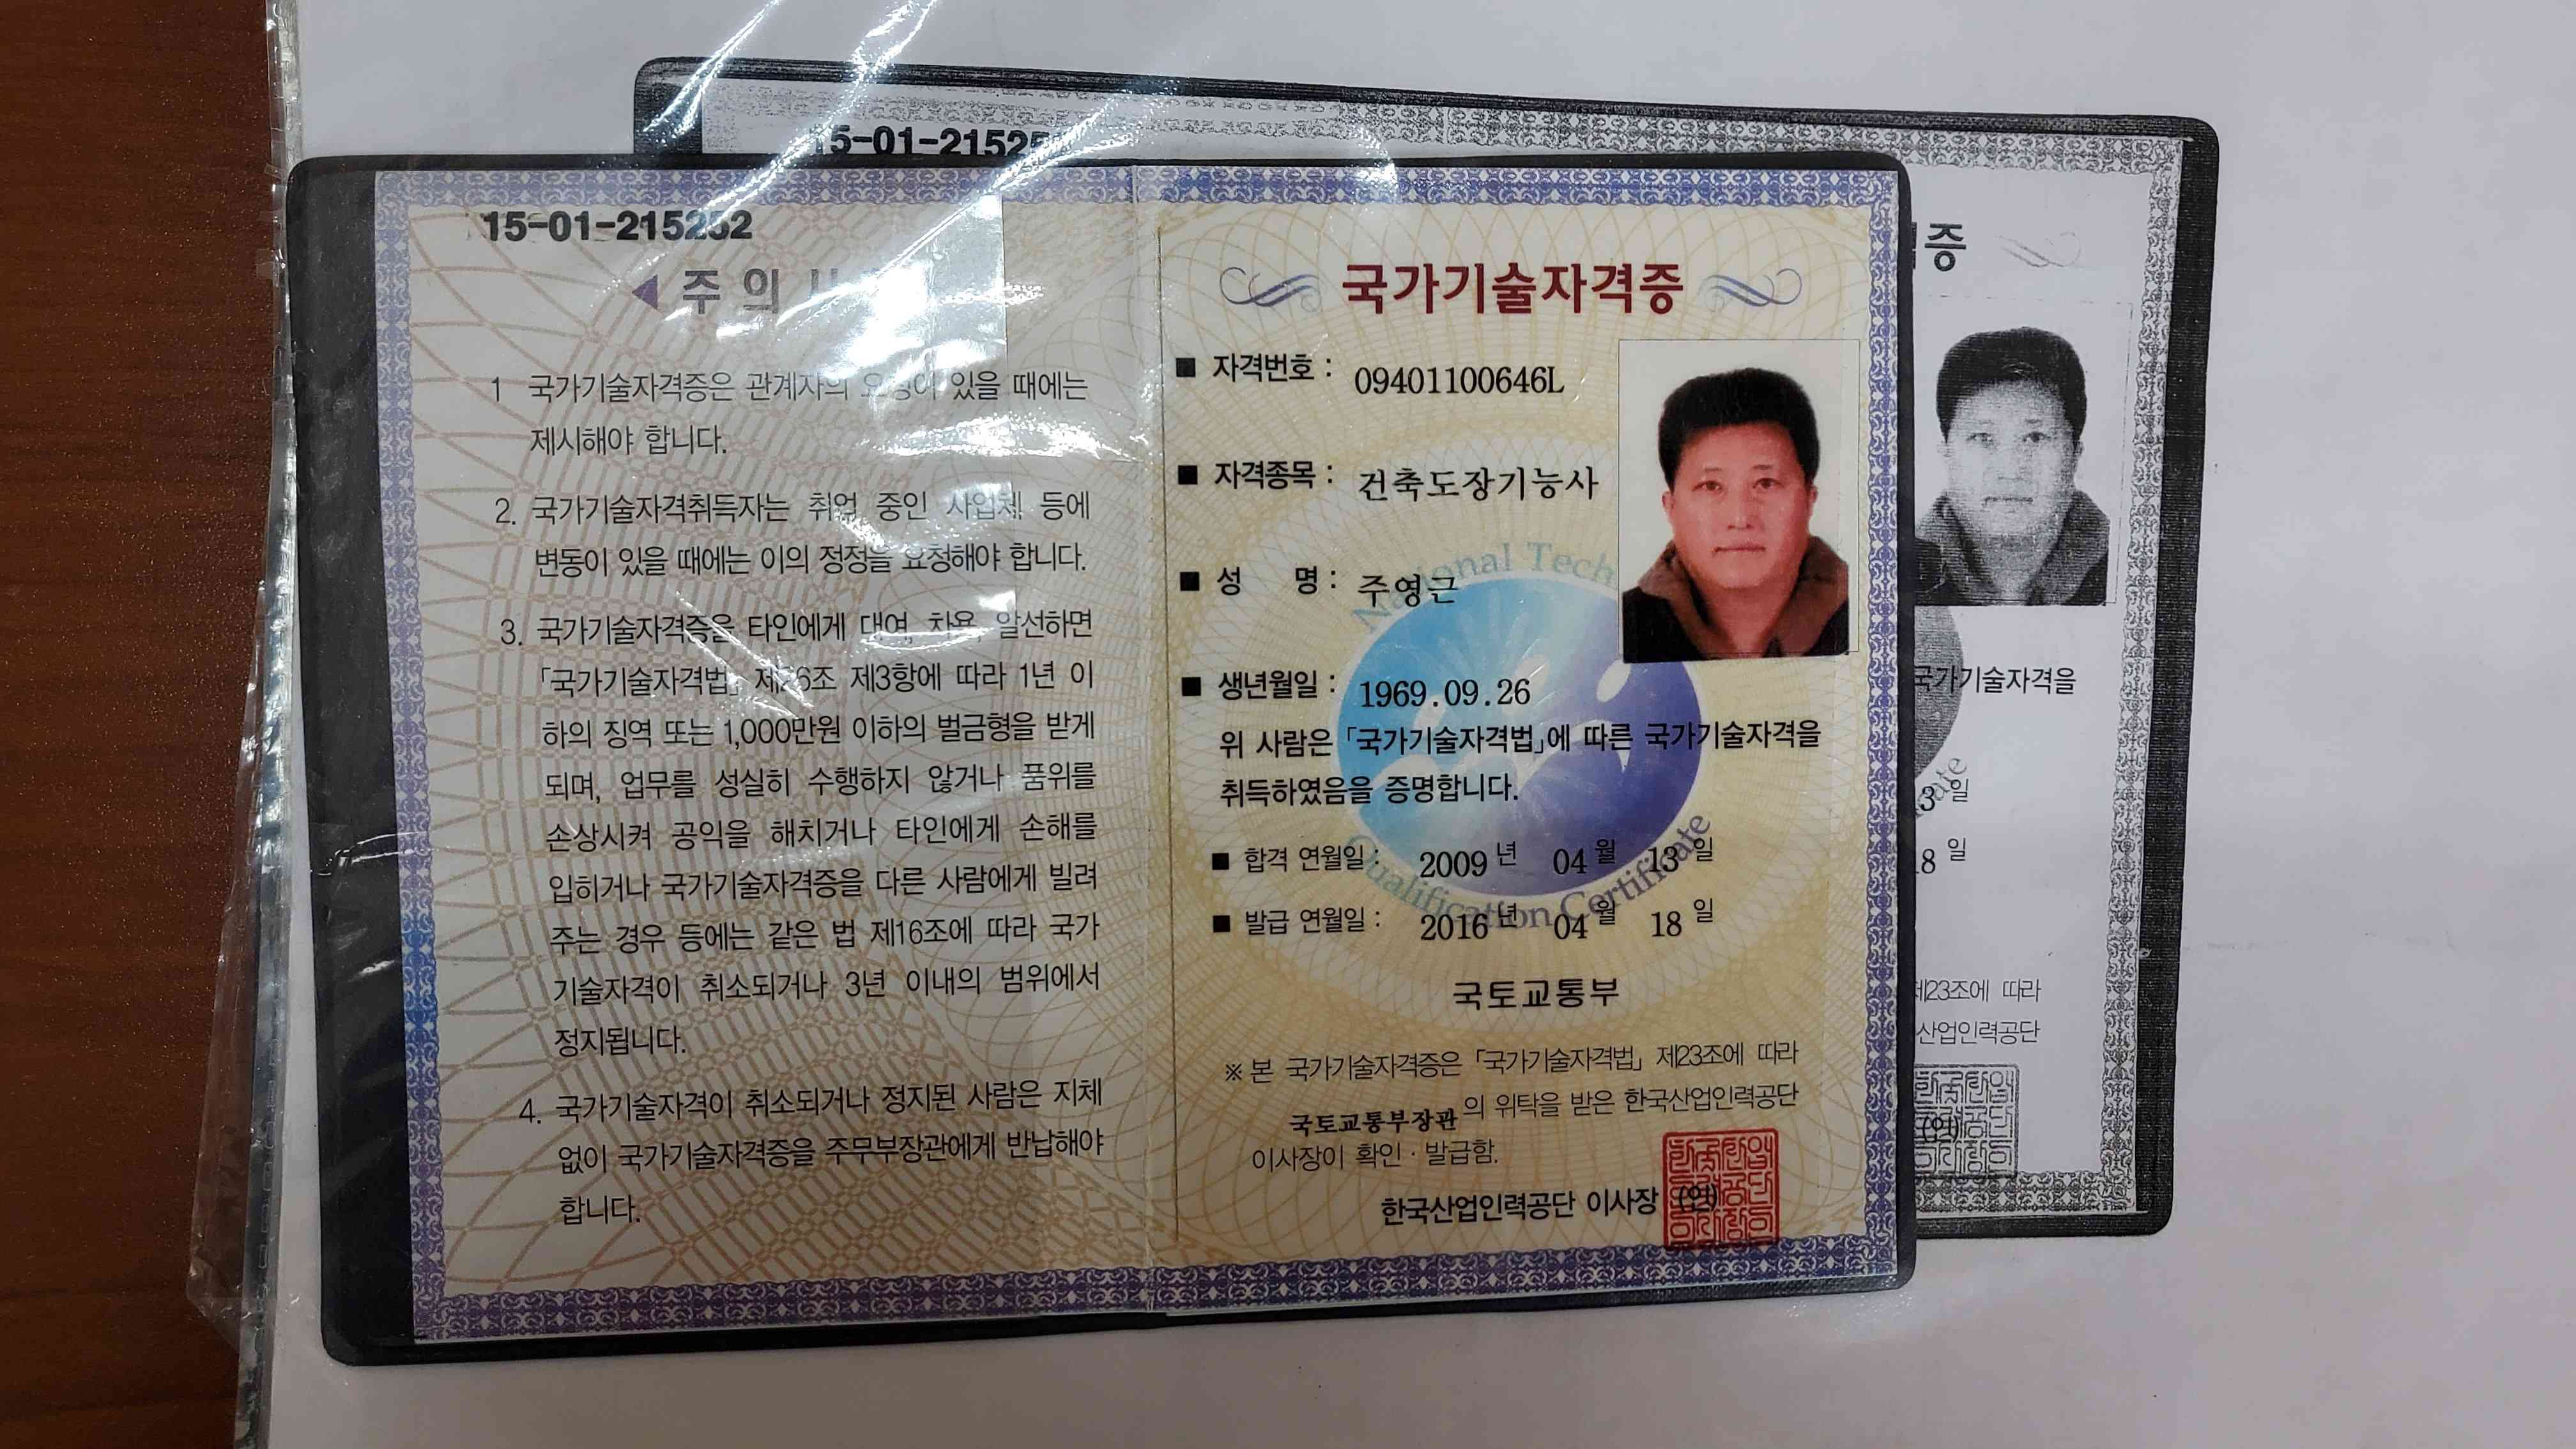 15-01-21525
15-01-215252
◀ 주 의
1 국가기술자격증은 관계자의 요청이 있을 때에는
제시해야 합니다.
2. 국가기술자격취득자는 취업 중인 사업체 등에
변동이 있을 때에는 이의 정정을 요청해야 합니다.
3. 국가기술자격증을 타인에게 대여, 차용, 알선하면
「국가기술자격법」 제26조 제3항에 따라 1년 이
하의 징역 또는 1,000만원 이하의 벌금형을 받게
되며, 업무를 성실히 수행하지 않거나 품위를
손상시켜 공익을 해치거나 타인에게 손해를
입히거나 국가기술자격증을 다른 사람에게 빌려
주는 경우 등에는 같은 법 제16조에 따라 국가
기술자격이 취소되거나 3년 이내의 범위에서
정지됩니다.
4. 국가기술자격이 취소되거나 정지된 사람은 지체
없이 국가기술자격증을 주무부장관에게 반납해야
합니다.
국가기술자격증
■ 자격번호 : 09401100646L
■ 자격종목 : 건축도장기능사
■ 성 명 : 주영근
■ 생년월일 : 1969.09.26
위 사람은 「국가기술자격법」에 따른 국가기술자격을
취득하였음을 증명합니다.
■ 합격 연월일 : 2009 년 04 월 13 일
■ 발급 연월일 : 2016 년 04 월 18 일
국토교통부
※ 본 국가기술자격증은 「국가기술자격법」 제23조에 따라
국토교통부장관 의 위탁을 받은 한국산업인력공단
이사장이 확인 · 발급함.
한국산업인력공단 이사장 (인)
National Tech
Qualification Certificate
증
국가기술자격을
3 일
18 일
제23조에 따라
산업인력공단
(인)